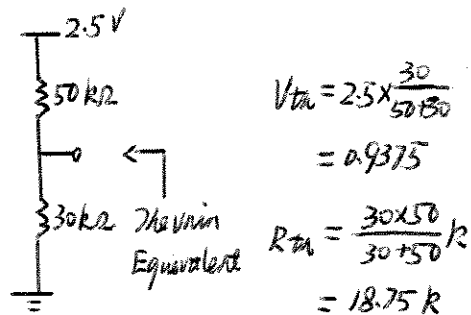 2.5 V
50 kΩ
30kΩ
Thevnin
Equivalent
Vth = 2.5 x 30 / 50+30
= 0.9375
Rth = 30x50 / 30+50 k
= 18.75 k